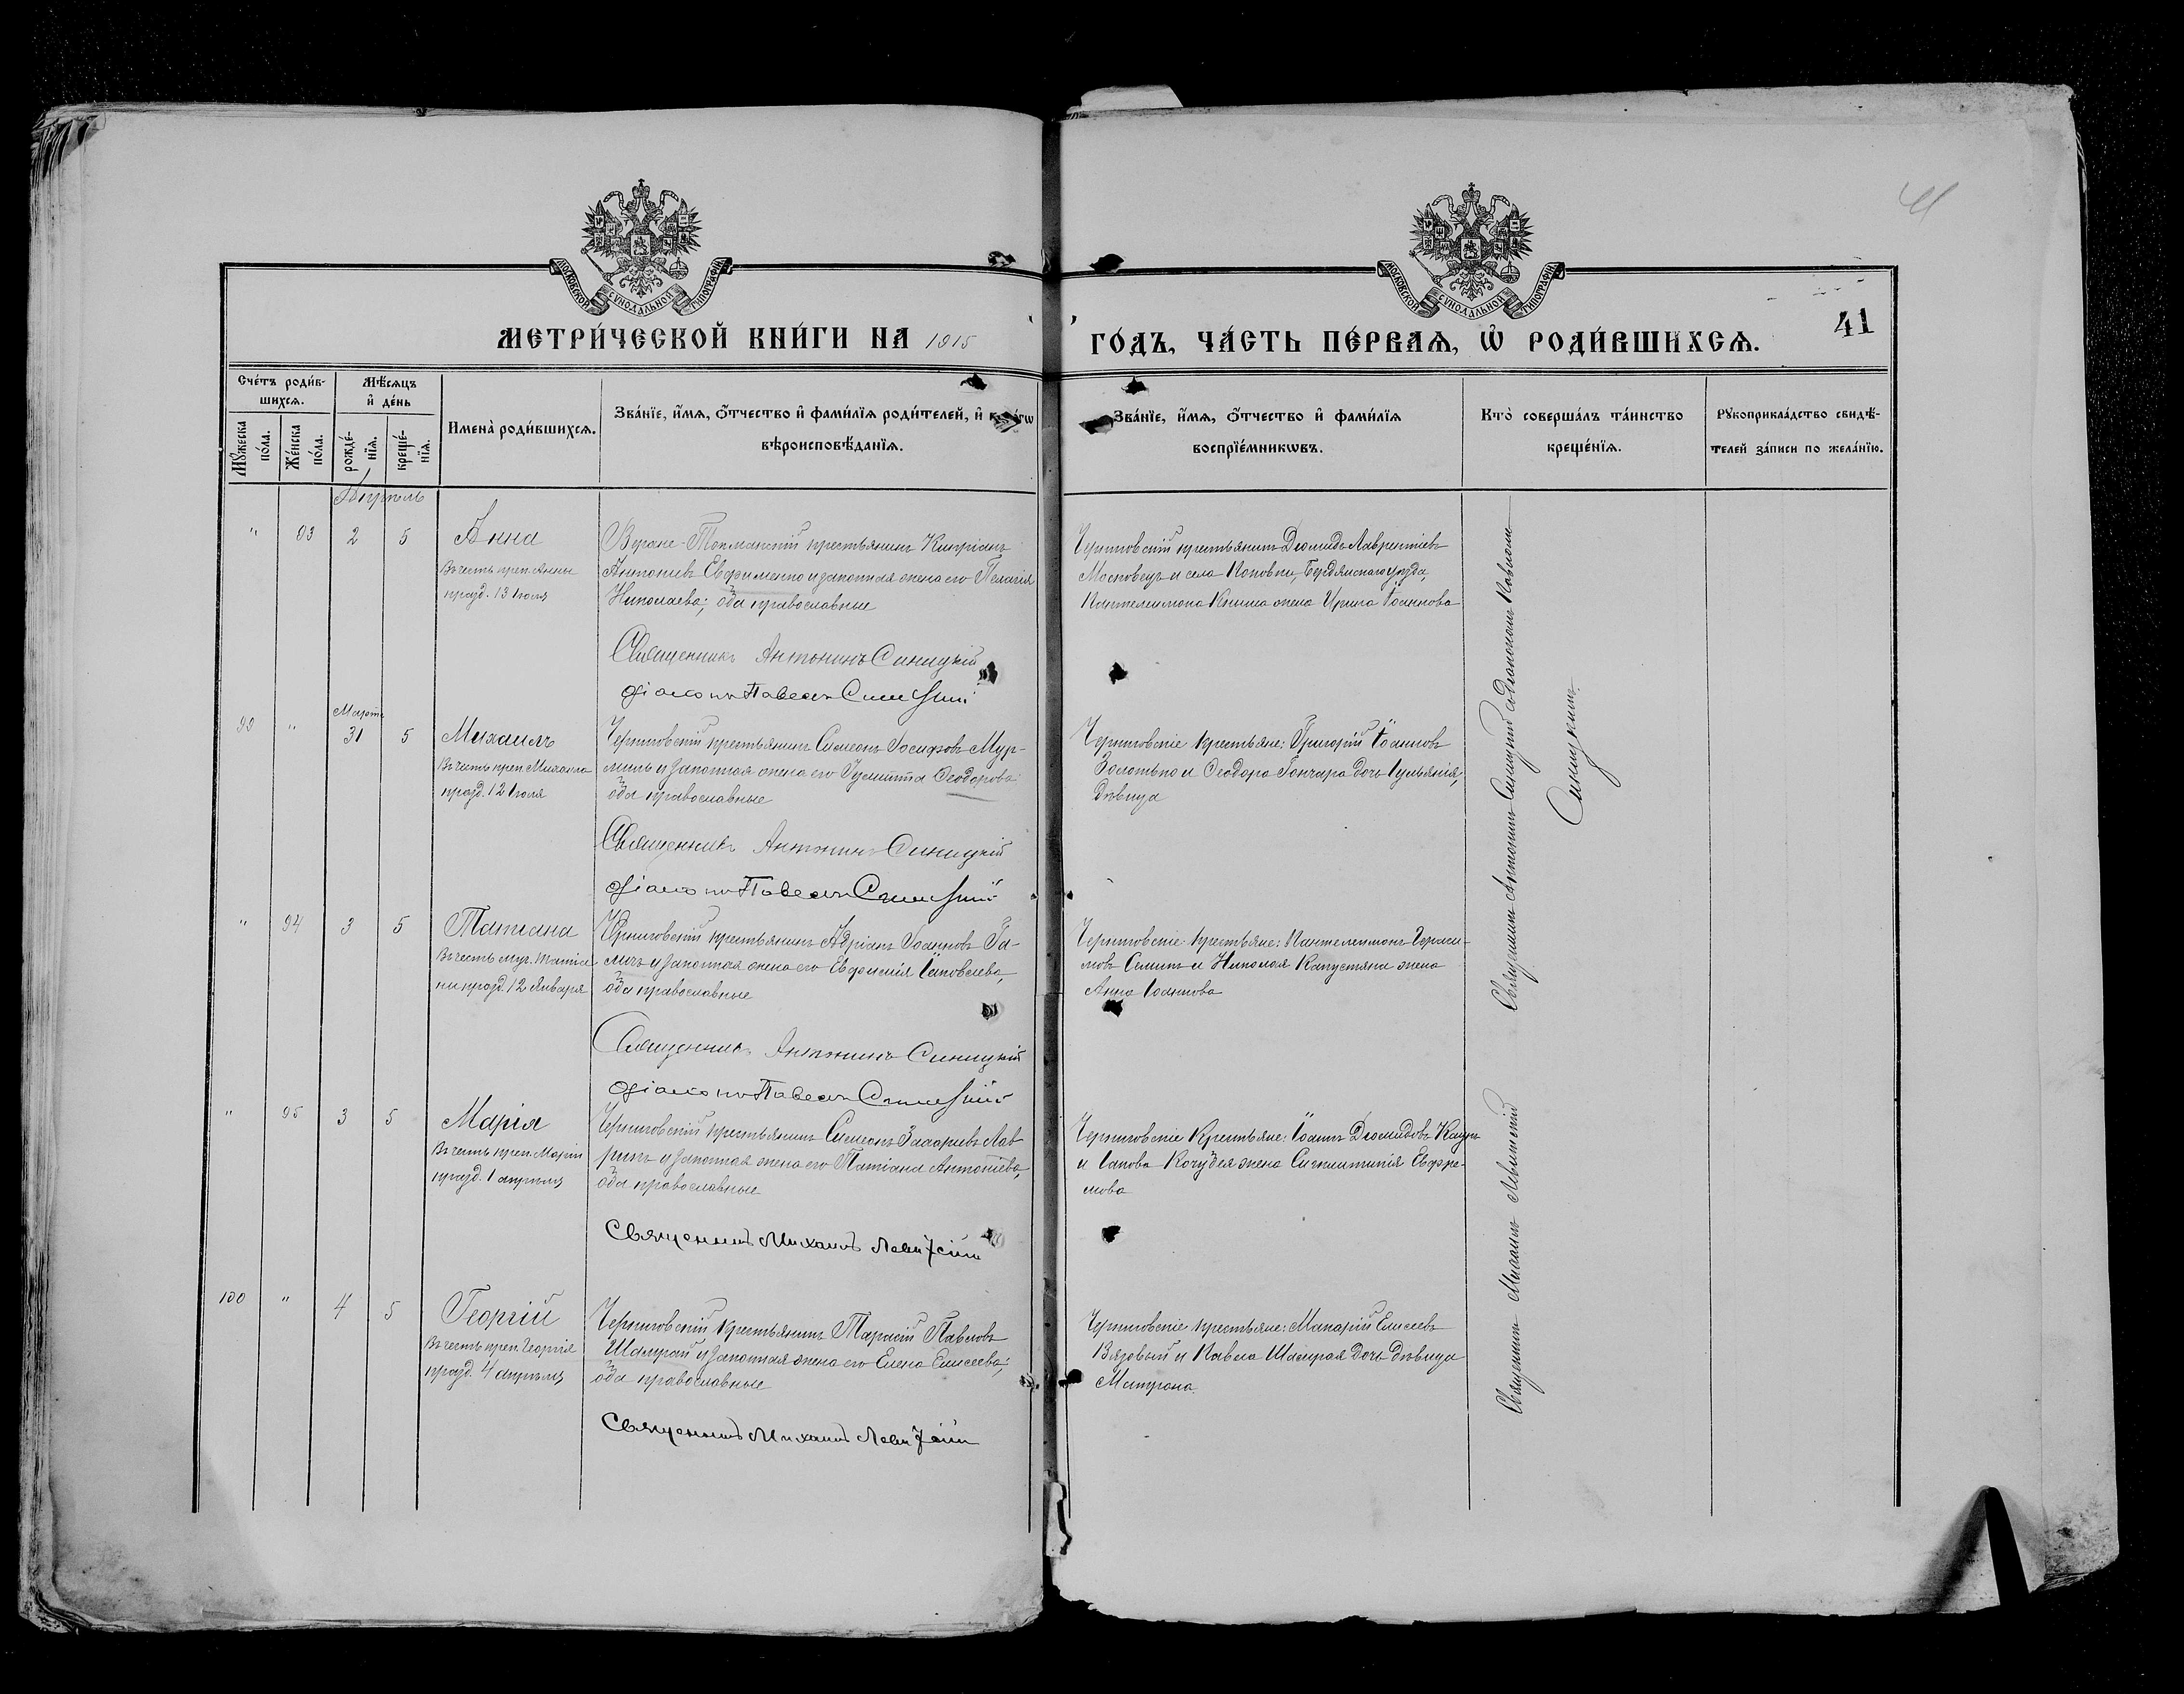 41
МОСКОВСКОЙ СѴНОДАЛЬНОЙ ТИПОГРАФІИ
МОСКОВСКОЙ СѴНОДАЛЬНОЙ ТИПОГРАФІИ
МЕТРИ́ЧЕСКОЙ КНИ́ГИ НА 1915
ГО́ДЪ, ЧА́СТЬ ПЕ́РВАѦ, Ѽ РОДИ́ВШИХСѦ.
41
Сче́тъ роди́в-
шихсѧ.
Мꙋ́жеска по́ла.
Же́нска по́ла.
Мѣ́сѧцъ
и҆ де́нь
рожде́-
нїѧ.
креще́-
нїѧ.
Имена̀ роди́вшихсѧ.
Зва́нїе, и҆́мѧ, ѻ҆́тчество и҆ фами́лїѧ роди́телей, и҆
вѣроисповѣ́данїѧ.
Зва́нїе, и҆́мѧ, ѻ҆́тчество и҆ фами́лїѧ
воспрїе́мникѡвъ.
Кто̀ соверша́лъ та́инство
креще́нїѧ.
Рꙋкоприкла́дство свидѣ́-
телей за́писи по жела́нїю.
Апрѣль
" 93 2 5 Анна
Въ честь преп. Анны
празд. 13 Іюля
Верхне-Токмакскій крестьянинъ Кипріанъ
Антоніевъ Евфименко и законная жена его Пелагія
Николаева; оба православные
Священникъ Антонинъ Синицкій
Діаконъ Павелъ Синицкій
Черниговскій крестьянинъ Діомидъ Лаврентіевъ
Московецъ и села Поповки, Бердянскаго уѣзда,
Пантелеимона Книша жена Ирина Іоаннова
Священникъ Антонинъ Синицкій съ діакономъ Павломъ
Синицкимъ.
99 " Марта
31 5 Михаилъ
Въ честь преп. Михаила
празд. 12 Іюля
Черниговскій крестьянинъ Симеонъ Іосифовъ Мур-
миль и законная жена его Іулитта Ѳеодорова
оба православные
Священникъ Антонинъ Синицкій
Діаконъ Павелъ Синицкій
Черниговскіе крестьяне: Григорій Іоанновъ
Золотько и Ѳеодора Гончара дочь Іульянія,
дѣвица
" 94 3 5 Татіана
Въ честь муч. Татіа-
ны празд. 12 Января
Черниговскій крестьянинъ Адріанъ Іоанновъ Га-
личъ и законная жена его Евфимія Іаковлева,
оба православные
Священникъ Антонинъ Синицкій
Діаконъ Павелъ Синицкій
Черниговскіе крестьяне: Пантелеимонъ Гераси-
мовъ и Николая Капустяна жена
Анна Іоаннова
" 95 3 5 Марія
Въ честь преп. Маріи
празд. 1 апрѣля
Черниговскій крестьянинъ Симеонъ Захаріевъ Лав-
рикъ и законная жена его Татіана Антоніева,
оба православные
Священникъ Михаилъ Левитскій
Черниговскіе Крестьяне: Іоаннъ Діомидовъ
и Іакова Кочубея жена Синклитикія Ефре-
мова
Священникъ Михаилъ Левитскій
100 " 4 5 Георгій
Въ честь преп. Георгія
празд. 4 апрѣля
Черниговскій Крестьянинъ Тарасій Павловъ
Шамрай и законная жена его Елена Елисеева;
оба православные
Священникъ Михаилъ Левитскій
Черниговскіе крестьяне: Макарій Елисеевъ
Вязовый и Павла Шамрая дочь дѣвица
Матрона.